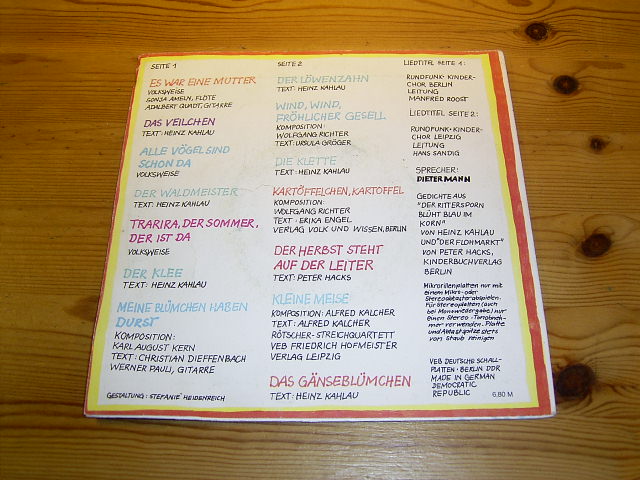 SEITE 1
ES WAR EINE MUTTER
VOLKSWEISE
SONJA AMELN, FLÖTE
ADALBERT QUADT, GITARRE
DAS VEILCHEN
TEXT: HEINZ KAHLAU
ALLE VÖGEL SIND
SCHON DA
VOLKSWEISE
DER WALDMEISTER
TEXT: HEINZ KAHLAU
TRARIRA, DER SOMMER,
DER IST DA
VOLKSWEISE
DER KLEE
TEXT: HEINZ KAHLAU
MEINE BLÜMCHEN HABEN
DURST
KOMPOSITION:
KARL AUGUST KERN
TEXT: CHRISTIAN DIEFFENBACH
WERNER PAULI, GITARRE
GESTALTUNG: STEFANIE HEIDENREICH
SEITE 2
DER LÖWENZAHN
TEXT: HEINZ KAHLAU
WIND, WIND,
FRÖHLICHER GESELL
KOMPOSITION:
WOLFGANG RICHTER
TEXT: URSULA GRÖGER
DIE KLETTE
TEXT: HEINZ KAHLAU
KARTÖFFELCHEN, KARTOFFEL
KOMPOSITION:
WOLFGANG RICHTER
TEXT: ERIKA ENGEL
VERLAG VOLK UND WISSEN, BERLIN
DER HERBST STEHT
AUF DER LEITER
TEXT: PETER HACKS
KLEINE MEISE
KOMPOSITION: ALFRED KALCHER
TEXT: ALFRED KALCHER
RÖTSCHER-STREICHQUARTETT
VEB FRIEDRICH HOFMEISTER
VERLAG LEIPZIG
DAS GÄNSEBLÜMCHEN
TEXT: HEINZ KAHLAU
LIEDTITEL SEITE 1:
RUNDFUNK-KINDER-
CHOR BERLIN
LEITUNG
MANFRED ROOST
LIEDTITEL SEITE 2:
RUNDFUNK-KINDER-
CHOR LEIPZIG
LEITUNG
HANS SANDIG
SPRECHER:
DIETER MANN
GEDICHTE AUS
"DER RITTERSPORN
BLÜHT BLAU IM
KORN"
VON HEINZ KAHLAU
UND "DER FLOHMARKT"
VON PETER HACKS,
KINDERBUCHVERLAG
BERLIN
Mikrorillenplatten nur mit
einem Mikro- oder
Stereoabtaster abspielen.
Für Stereoplatten (auch
bei Monowiedergabe) nur
einen Stereo-Tonabneh-
mer verwenden. Platte
und Abtastspitze stets
von Staub reinigen
VEB DEUTSCHE SCHALL-
PLATTEN · BERLIN DDR
MADE IN GERMAN
DEMOCRATIC
REPUBLIC
6,80 M